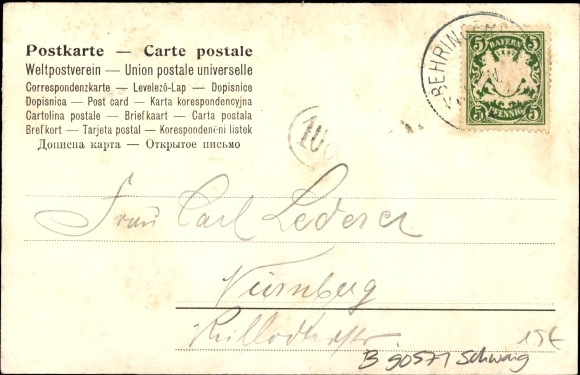 Postkarte — Carte postale
Weltpostverein — Union postale universelle
Correspondenzkarte — Levelező-Lap — Dopisnice
Dopisnica — Post card — Karta korespondencyjna
Cartolina postale — Briefkaart — Carta postala
Brefkort — Tarjeta postal — Korespondenční listek
Дописна карта — Открытое письмо
BEHRINGER
5 BAYERN 5
5 PFENNIG 5
Frau Carl Lederer
Nürnberg
B 90571 Schwaig
15€